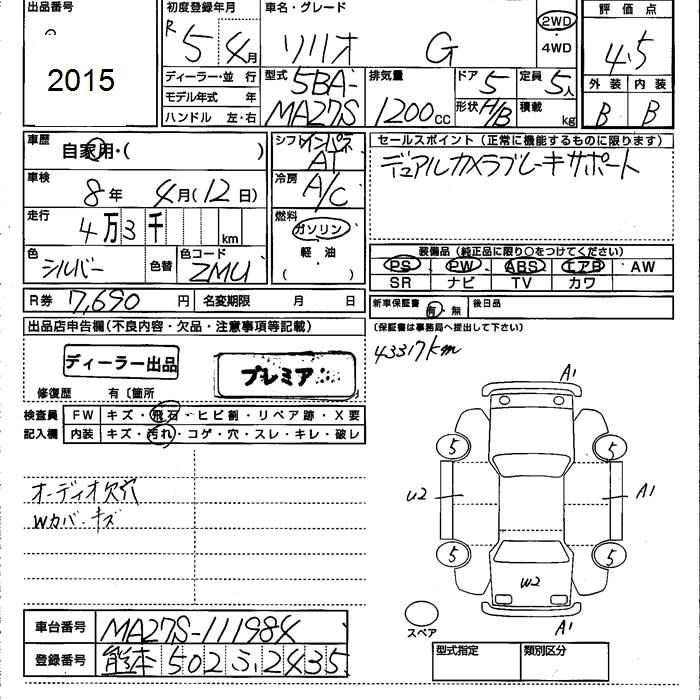 出品番号
2015
初度登録年月
R5年4月
車名・グレード
ソリオ G
2WD
・4WD
評価点
4.5
外装 内装
B B
ディーラー・並行
モデル年式 年
ハンドル 左・右
型式
5BA-
MA27S
排気量
1200cc
ドア 5
形状 H/B
定員 5人
積載 kg
車歴
自家用・( )
車検
8年 4月(12日)
走行
4万3千 km
色
シルバー
色替
色コード
ZMU
シフト インパネ
AT
冷房
A/C
燃料
ガソリン
軽・油
( )
セールスポイント(正常に機能するものに限ります)
デュアルカメラブレーキサポート
装備品(純正品に限り○をつけてください)
PS PW ABS エアB AW
SR ナビ TV カワ
R券 7,690円
名変期限 月 日
新車保証書
有・無
後日品
(保証書は事務局へ提出して下さい)
43317km
出品店申告欄(不良内容・欠品・注意事項等記載)
ディーラー出品
プレミア
修復歴 有〔箇所
検査員
記入欄
FW キズ・飛石・ヒビ割・リペア跡・X要
内装 キズ・汚れ・コゲ・穴・スレ・キレ・破レ
オーディオ欠穴
Wカバーキズ
A1
5 5
U2
A1
5 5
W2
A1
スペア
車台番号 MA27S-111984
登録番号 熊本 502 ふ 2435
型式指定 類別区分